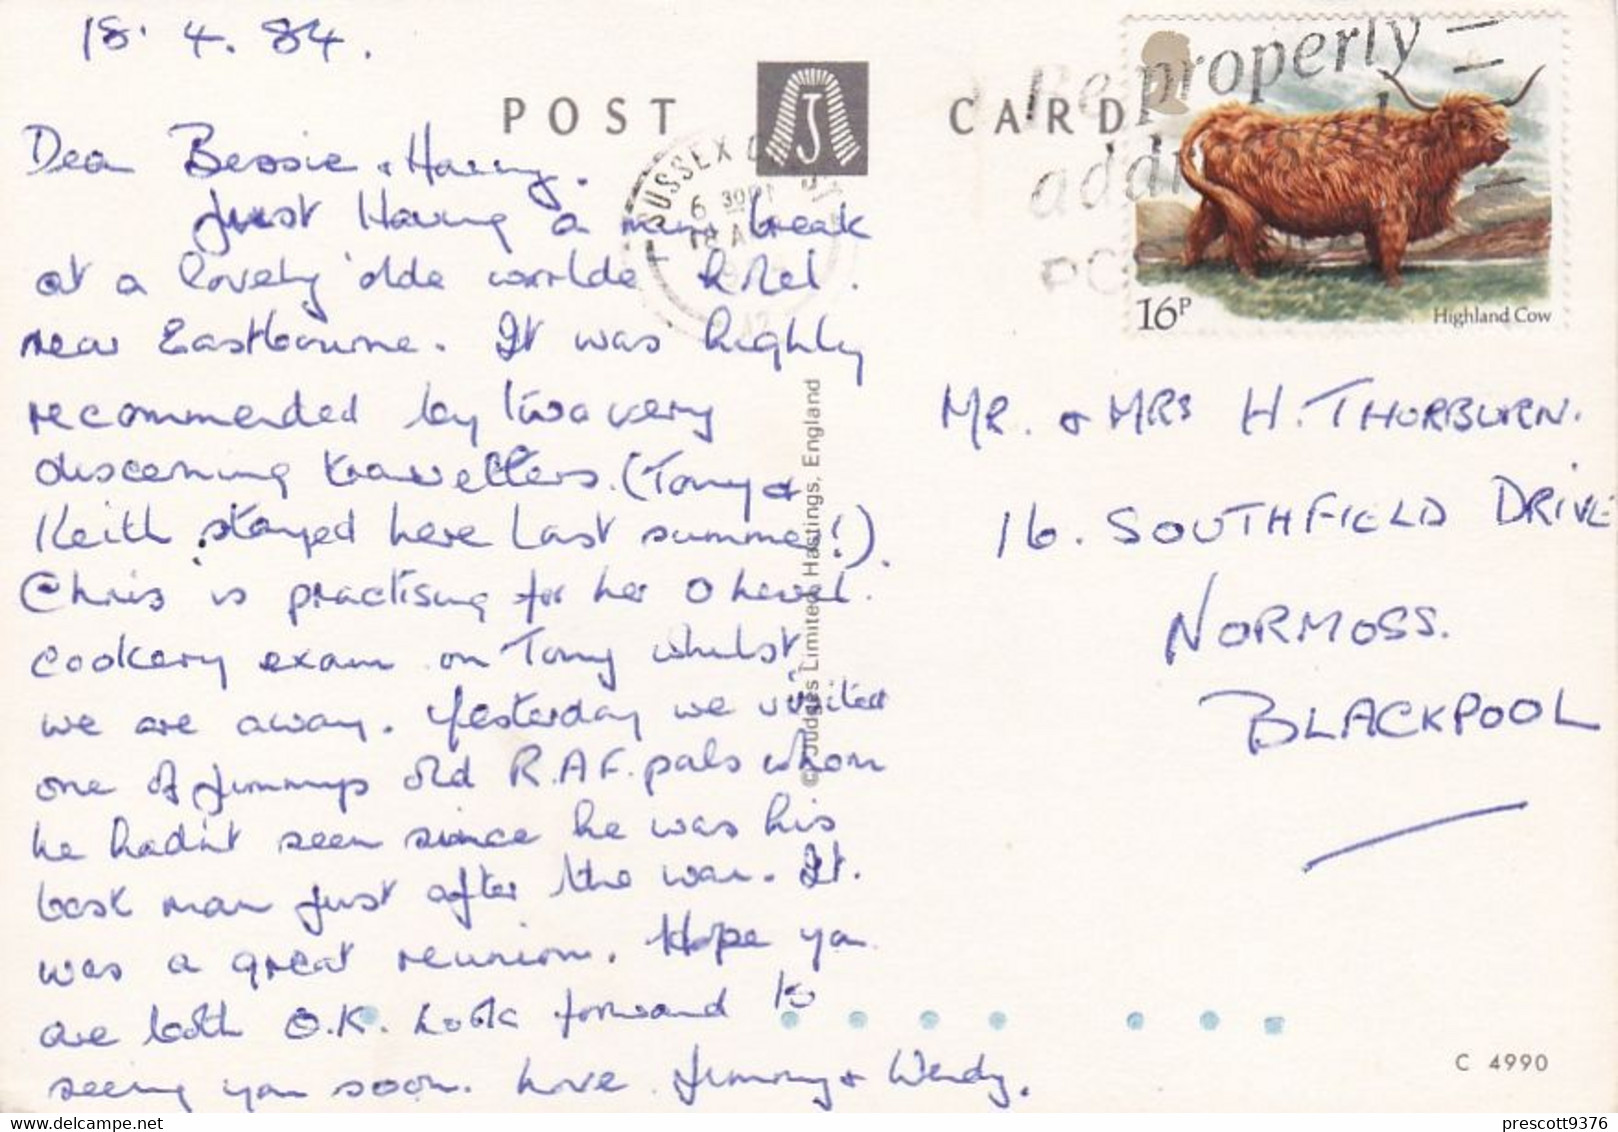 18. 4. 84.
POST CARD
J
SUSSEX
6 30PM
18 A
Be properly
addressed
POS
16P
Highland Cow
Dear Bessie & Harry.
Just Having a mini break
at a lovely 'olde worlde hotel.
near Eastbourne. It was highly
recommended by two very
discerning travellers. (Tony &
Keith stayed here last summer!).
Chris is practising for her O level.
cookery exam on Tony whilst
we are away. Yesterday we visited
one of Jimmys old R.A.F. pals whom
he hadn't seen since he was his
best man just after the war. It.
was a great reunion. Hope you
are both O.K. Look forward to
seeing you soon. Love Jimmy & Wendy.
© Judges Limited, Hastings, England
MR. & MRS H. THORBURN.
16. SOUTHFIELD DRIVE
NORMOSS.
BLACKPOOL
C 4990
prescott9376